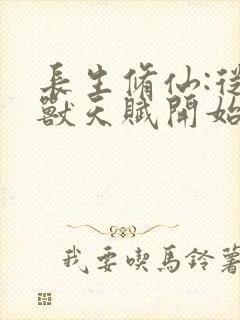 長生脩仙:從
獸天賦開始
我要喫馬鈴薯